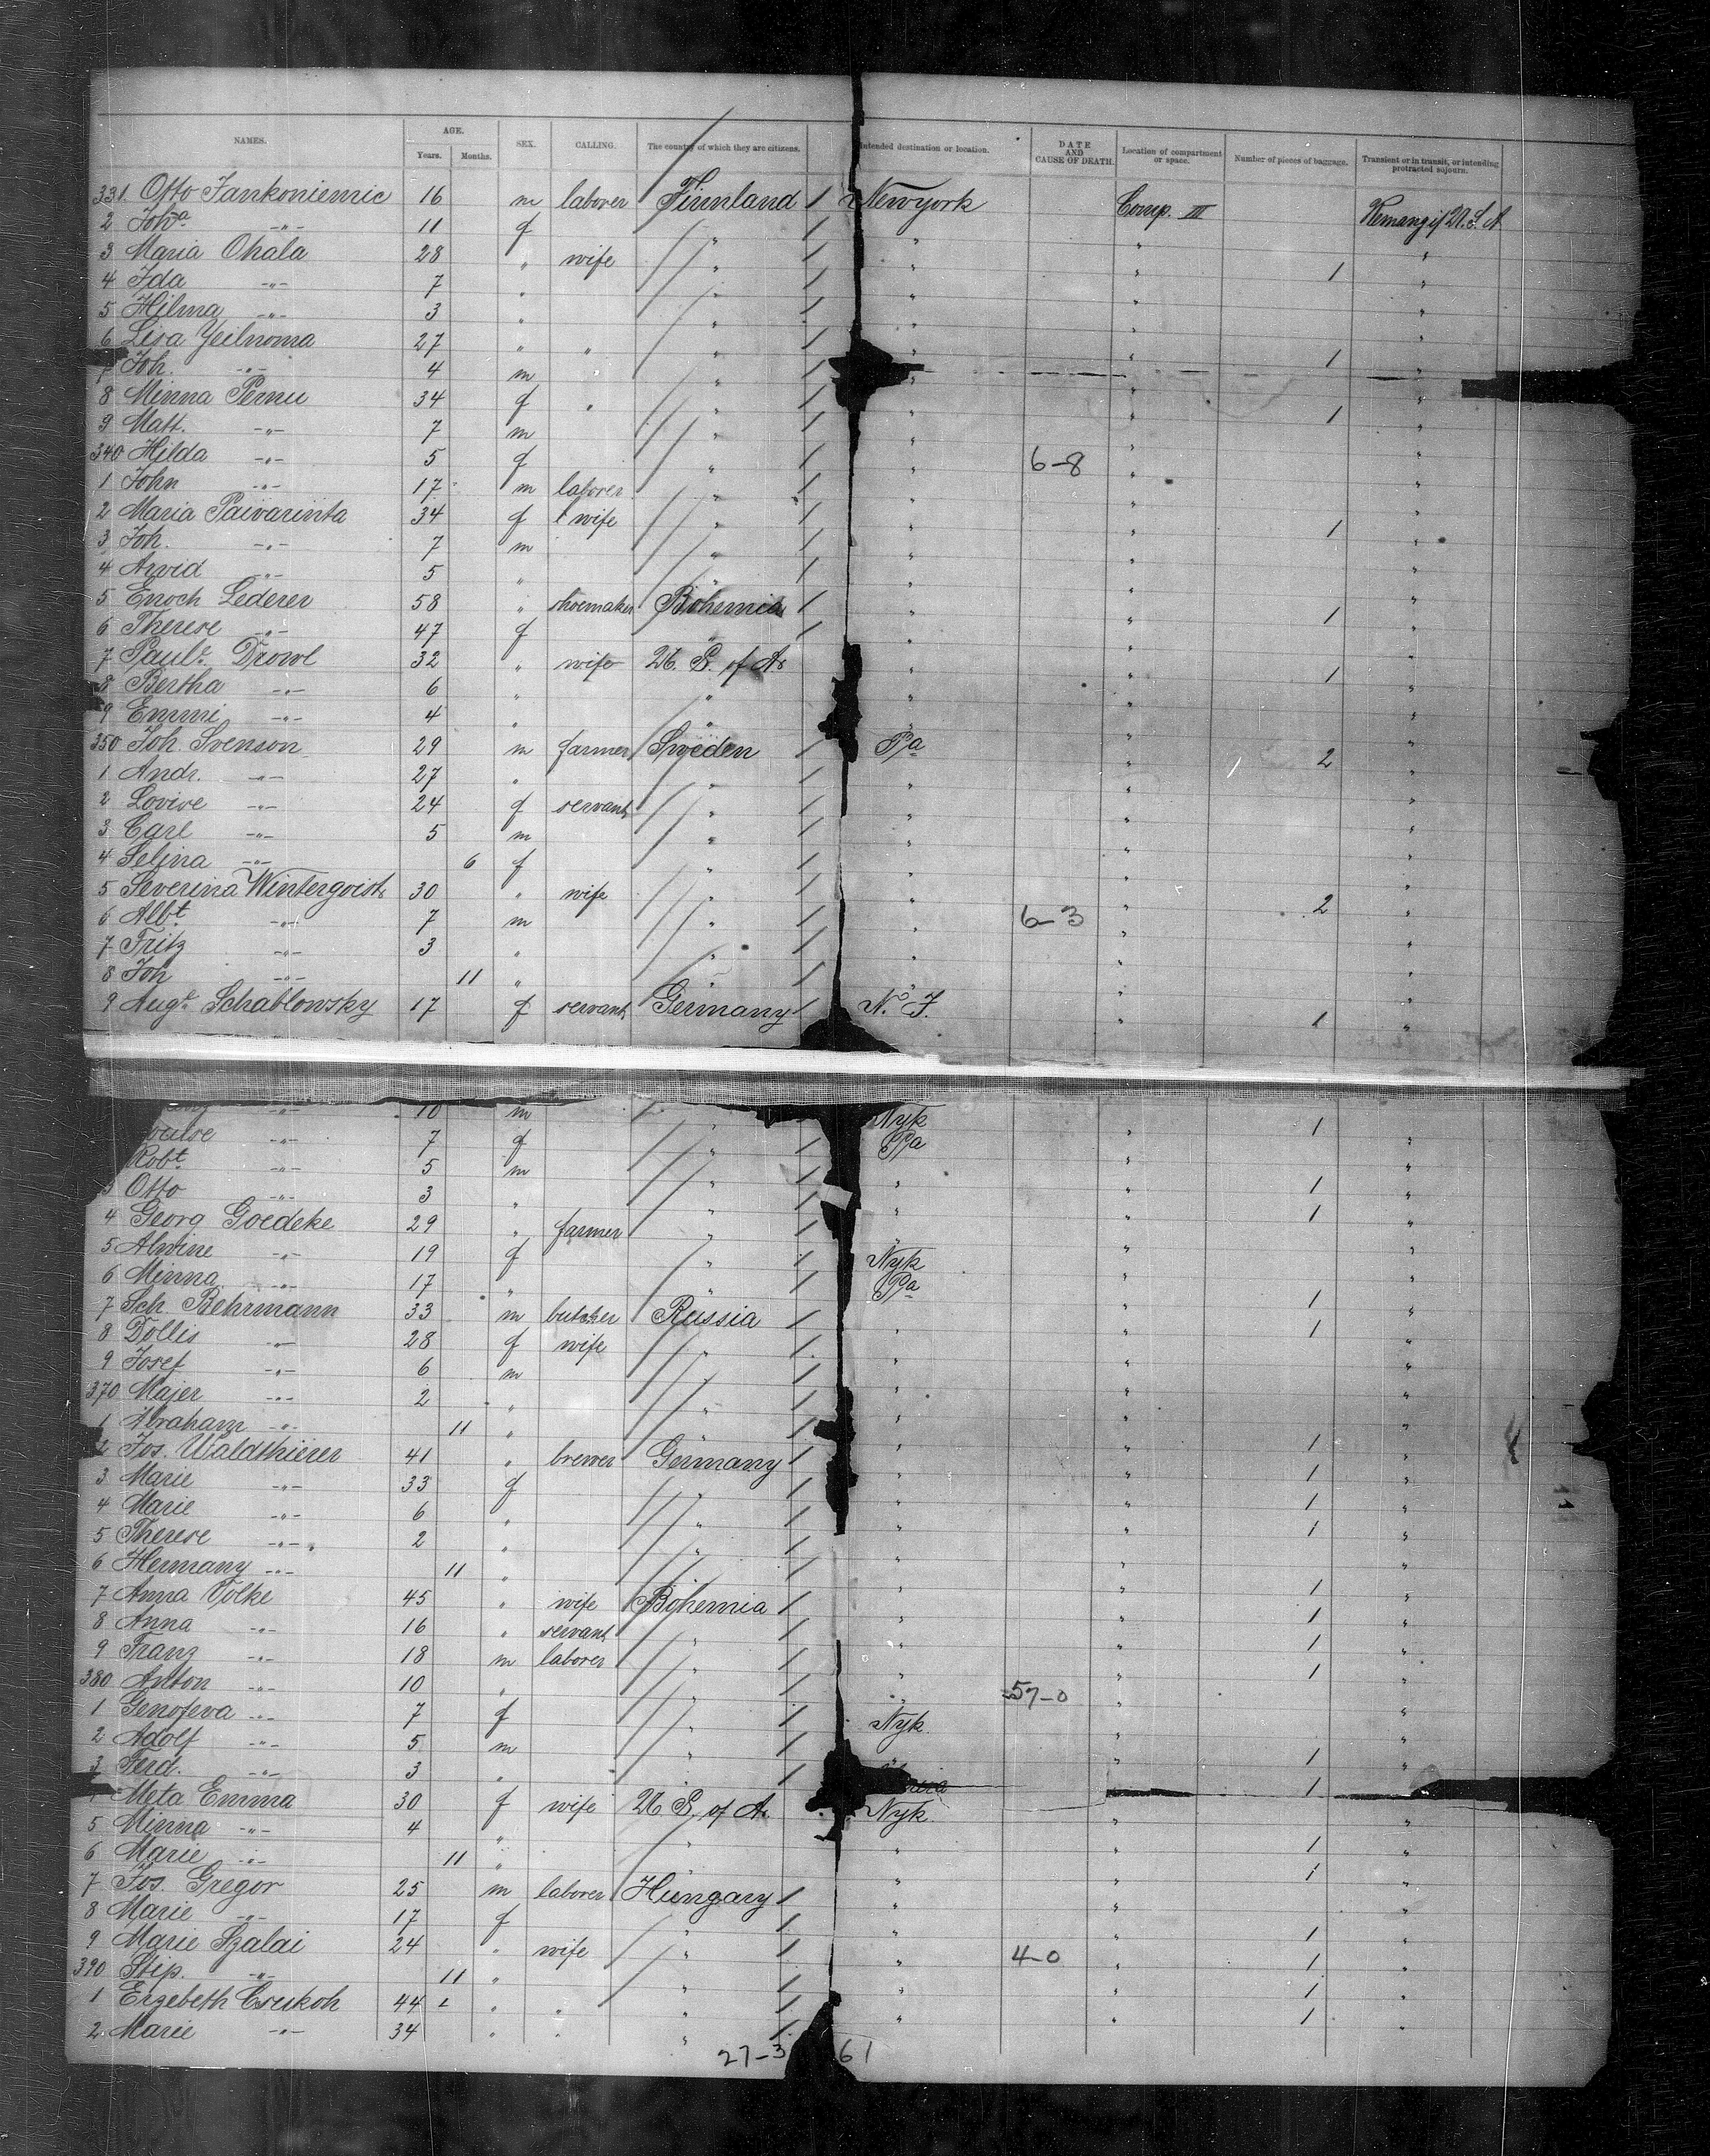 NAMES. AGE. Years. Months. SEX. CALLING. The country of which they are citizens. Intended destination or location. DATE AND CAUSE OF DEATH. Location of compartment or space. Number of pieces of baggage. Transient or in transit, or intending protracted sojourn.
331. Otto Jankoniemic 16 m laborer Finnland / Newyork Comp. III U.S.A
2 Joh.a -"- 11 f " / " " "
3 Maria Ohala 28 " wife " / " " 1 "
4 Ida -"- 7 " " / " " "
5 Hilma -"- 3 " " / " " "
6 Lisa Yeilnoma 27 " " " / " " 1 "
7 Joh. -"- 4 m " / " " "
8 Minna Pernu 34 f " " / " " 1 "
9 Matt. -"- 7 m " / " " "
340 Hilda -"- 5 f " / " 6-8 " "
1 John -"- 17 m laborer " / " " "
2 Maria Paivarinta 34 f wife " / " " 1 "
3 Joh. -"- 7 m " / " " "
4 Arvid -"- 5 " " / " " "
5 Enoch Lederer 58 " shoemaker Bohemia / " " 1 "
6 Therese -"- 47 f " / " " "
7 Paule. Drowl 32 " wife U. S. of A. " " 1 "
8 Bertha -"- 6 " " " " "
9 Emmi -"- 4 " " " " "
350 Joh. Svenson 29 m farmer Sweden / Pa " 2 "
1 Andr. -"- 27 " " / " " "
2 Lovise -"- 24 f servant " / " " "
3 Carl -"- 5 m " / " " "
4 Selina -"- 6 f " / " " "
5 Severina Winterqvist 30 " wife " / " " 2 "
6 Albt -"- 7 m " / " 6-3 " "
7 Fritz -"- 3 " " / " " "
8 Joh -"- 11 " " / " " "
9 Auge. Schablowsky 17 f servant Germany / N. J. " 1 "
-"- 10 m Nyk 1
-"- 7 f " / Pa " "
Robt -"- 5 m " / " " 1 "
3 Otto -"- 3 " " / " " 1 "
4 Georg Goedeke 29 " farmer " / " " "
5 Alwine -"- 19 f " / Nyk " "
6 Minna -"- 17 " " / Pa " 1 "
7 Sch. Behrmann 33 m butcher Russia / " " 1 "
8 Dollis -"- 28 f wife " / " " "
9 Josef -"- 6 m " / " " "
370 Majer -"- 2 " " / " " "
1 Abraham -"- 11 " " / " " 1 "
2 Jos. Waldthierer 41 " brewer Germany / " " 1 "
3 Marie -"- 33 f " / " " 1 "
4 Marie -"- 6 " " / " " 1 "
5 Therese -"- 2 " " / " " "
6 Hermany -"- 11 " " / " " 1 "
7 Anna Völke 45 " wife Bohemia / " " 1 "
8 Anna -"- 16 " servant " / " " 1 "
9 Franz -"- 18 m laborer " / " " 1 "
380 Anton -"- 10 " " / " 57-0 " "
1 Genofeva -"- 7 f " / Nyk. " "
2 Adolf -"- 5 m " / " " 1 "
3 Ferd. -"- 3 " " / 1
Meta Emma 30 f wife U. S. of A. Nyk " "
5 Minna -"- 4 " " " " 1 "
6 Marie -"- 11 " " " " 1 "
7 Jos. Gregor 25 m laborer Hungary / " " "
8 Marie -"- 17 f " / " " 1 "
9 Marie Szalai 24 " wife " / " 4-0 " 1 "
390 Stip. -"- 11 " " / " " 1 "
1 Erzebeth Csukoh 44 " " " / " " 1 "
2 Marie -"- 34 " " " /
27-3 61